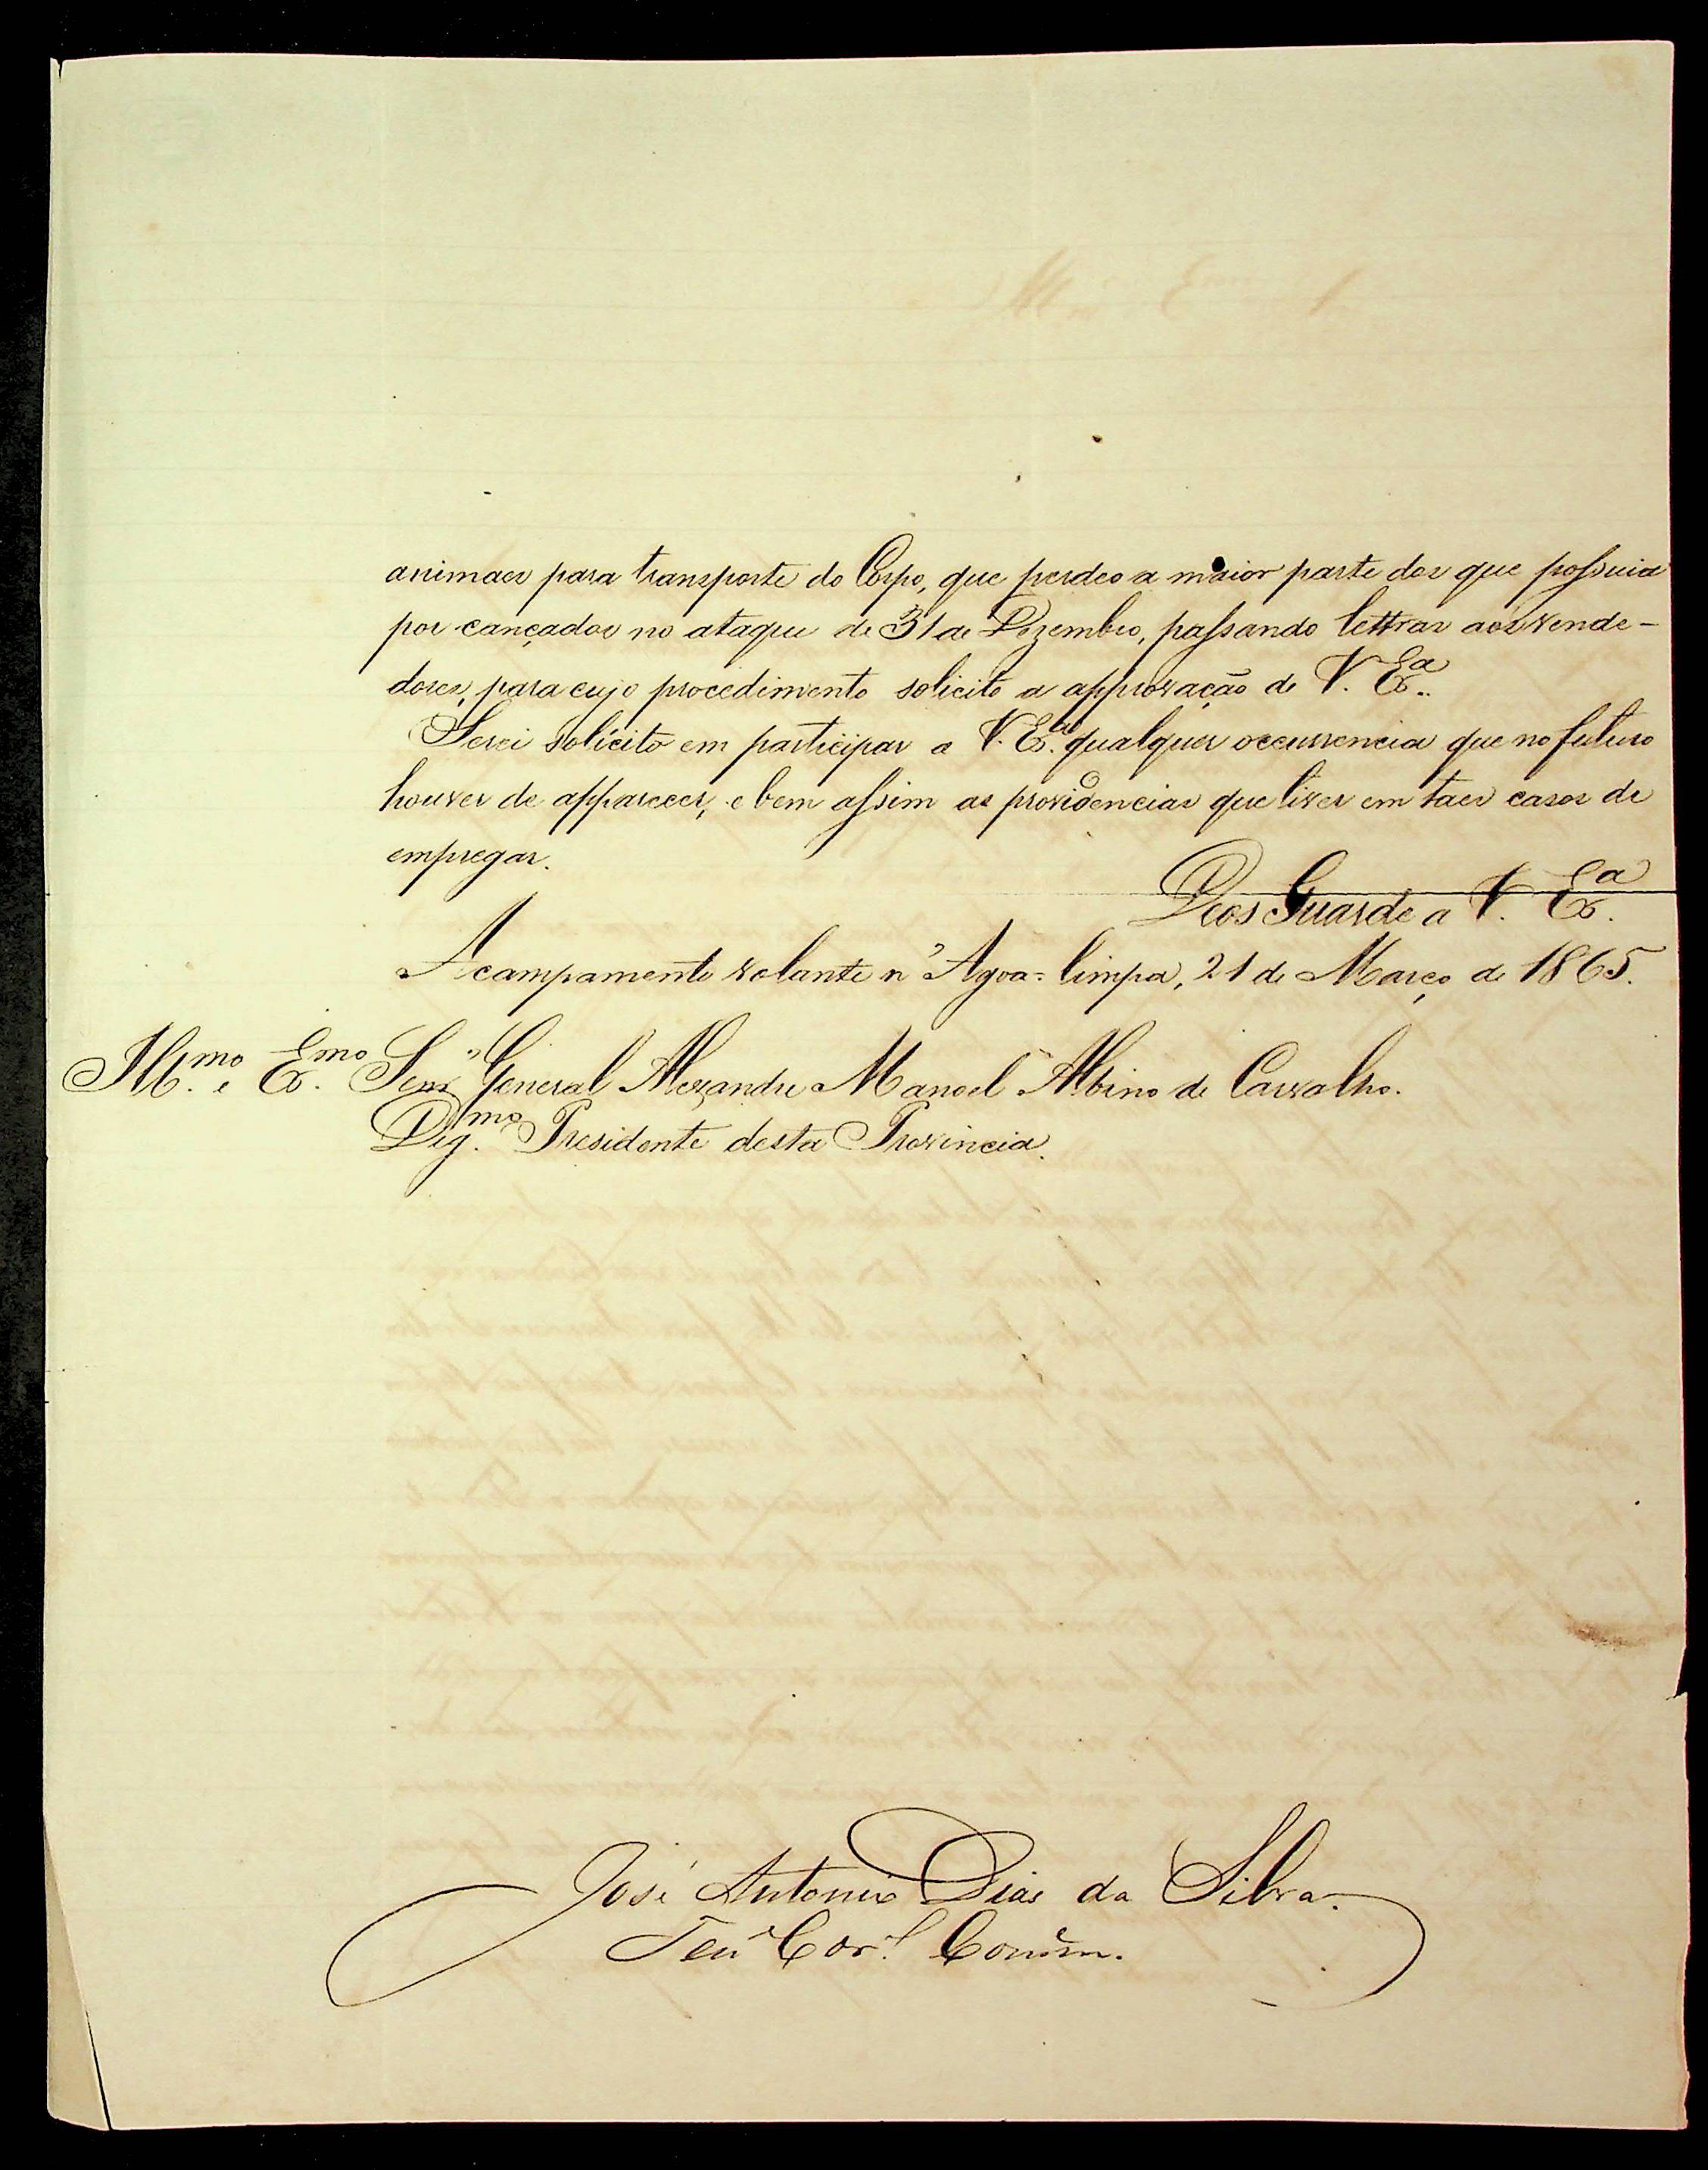 animaes para transporte do Corpo, que perdeo a maior parte dos que possuia
por cançados no ataque de 31 de Dezembro, passando lettras aos vende-
dores, para cujo procedimento solicito a approvação de V. Exª.
Serei solicito em participar a V. Exª. qualquer occurrencia que no futuro
houver de apparecer, e bem assim as providencias que tiver em taes casos de
empregar.
Deos Guarde a V. Exª.
Acampamento volante n'Agoa-limpa, 21 de Março de 1865.
Illmo. e Exmo. Senr. General Alexandre Manoel Albino de Carvalho.
Digmo. Presidente desta Provincia.
José Antonio Dias da Silva.
Tene Corl. Comm.